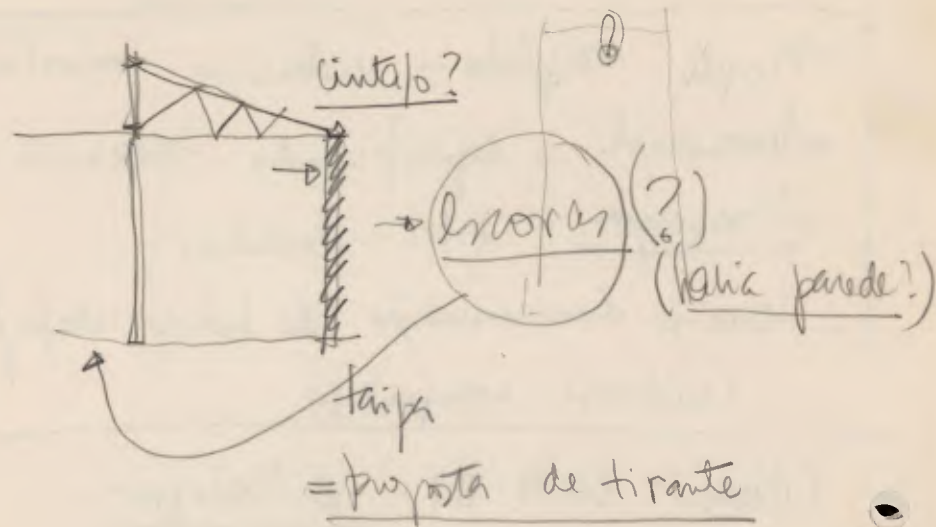 cintaþo?
escoras (?)
(havia parede?)
taipa
= proposta de tirante